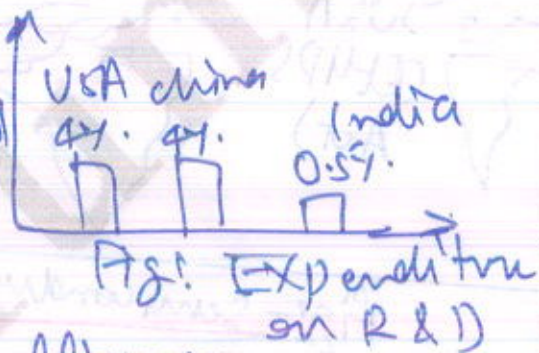 USA China
4%. 4%. India
0.5%.
Fig: Expenditure
on R & D